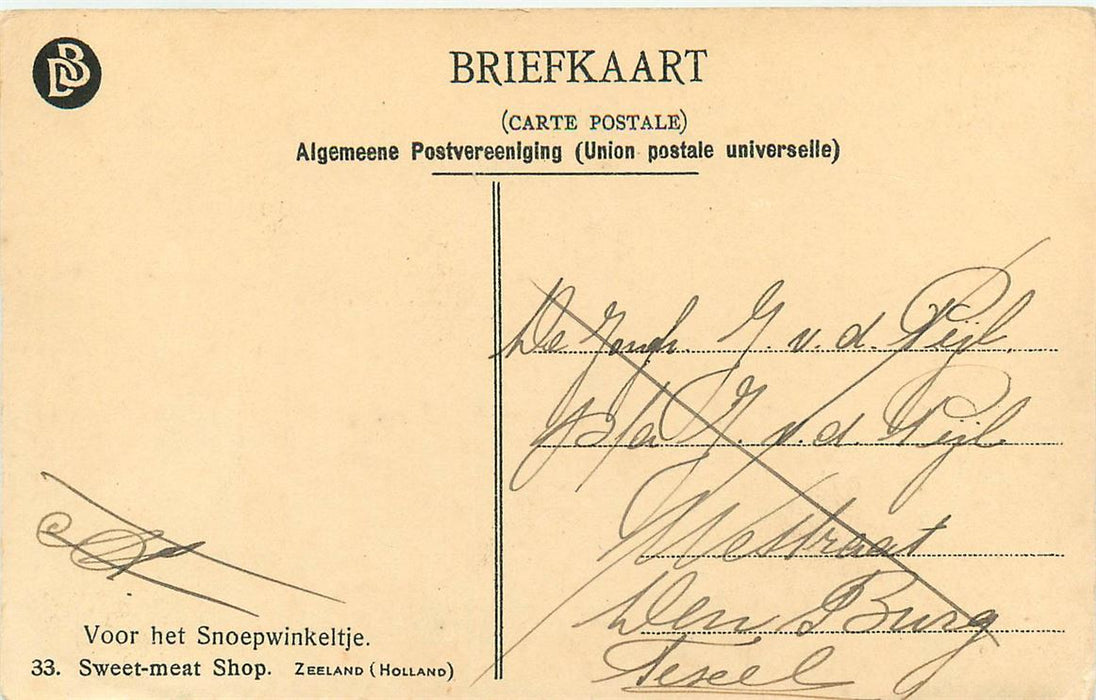 DB
BRIEFKAART
(CARTE POSTALE)
Algemeene Postvereeniging (Union postale universelle)
De Jongh. J. v. d. Pijl.
p/a J. v. d. Pijl
Den Burg
Texel
Voor het Snoepwinkeltje.
33. Sweet-meat Shop. ZEELAND (HOLLAND)